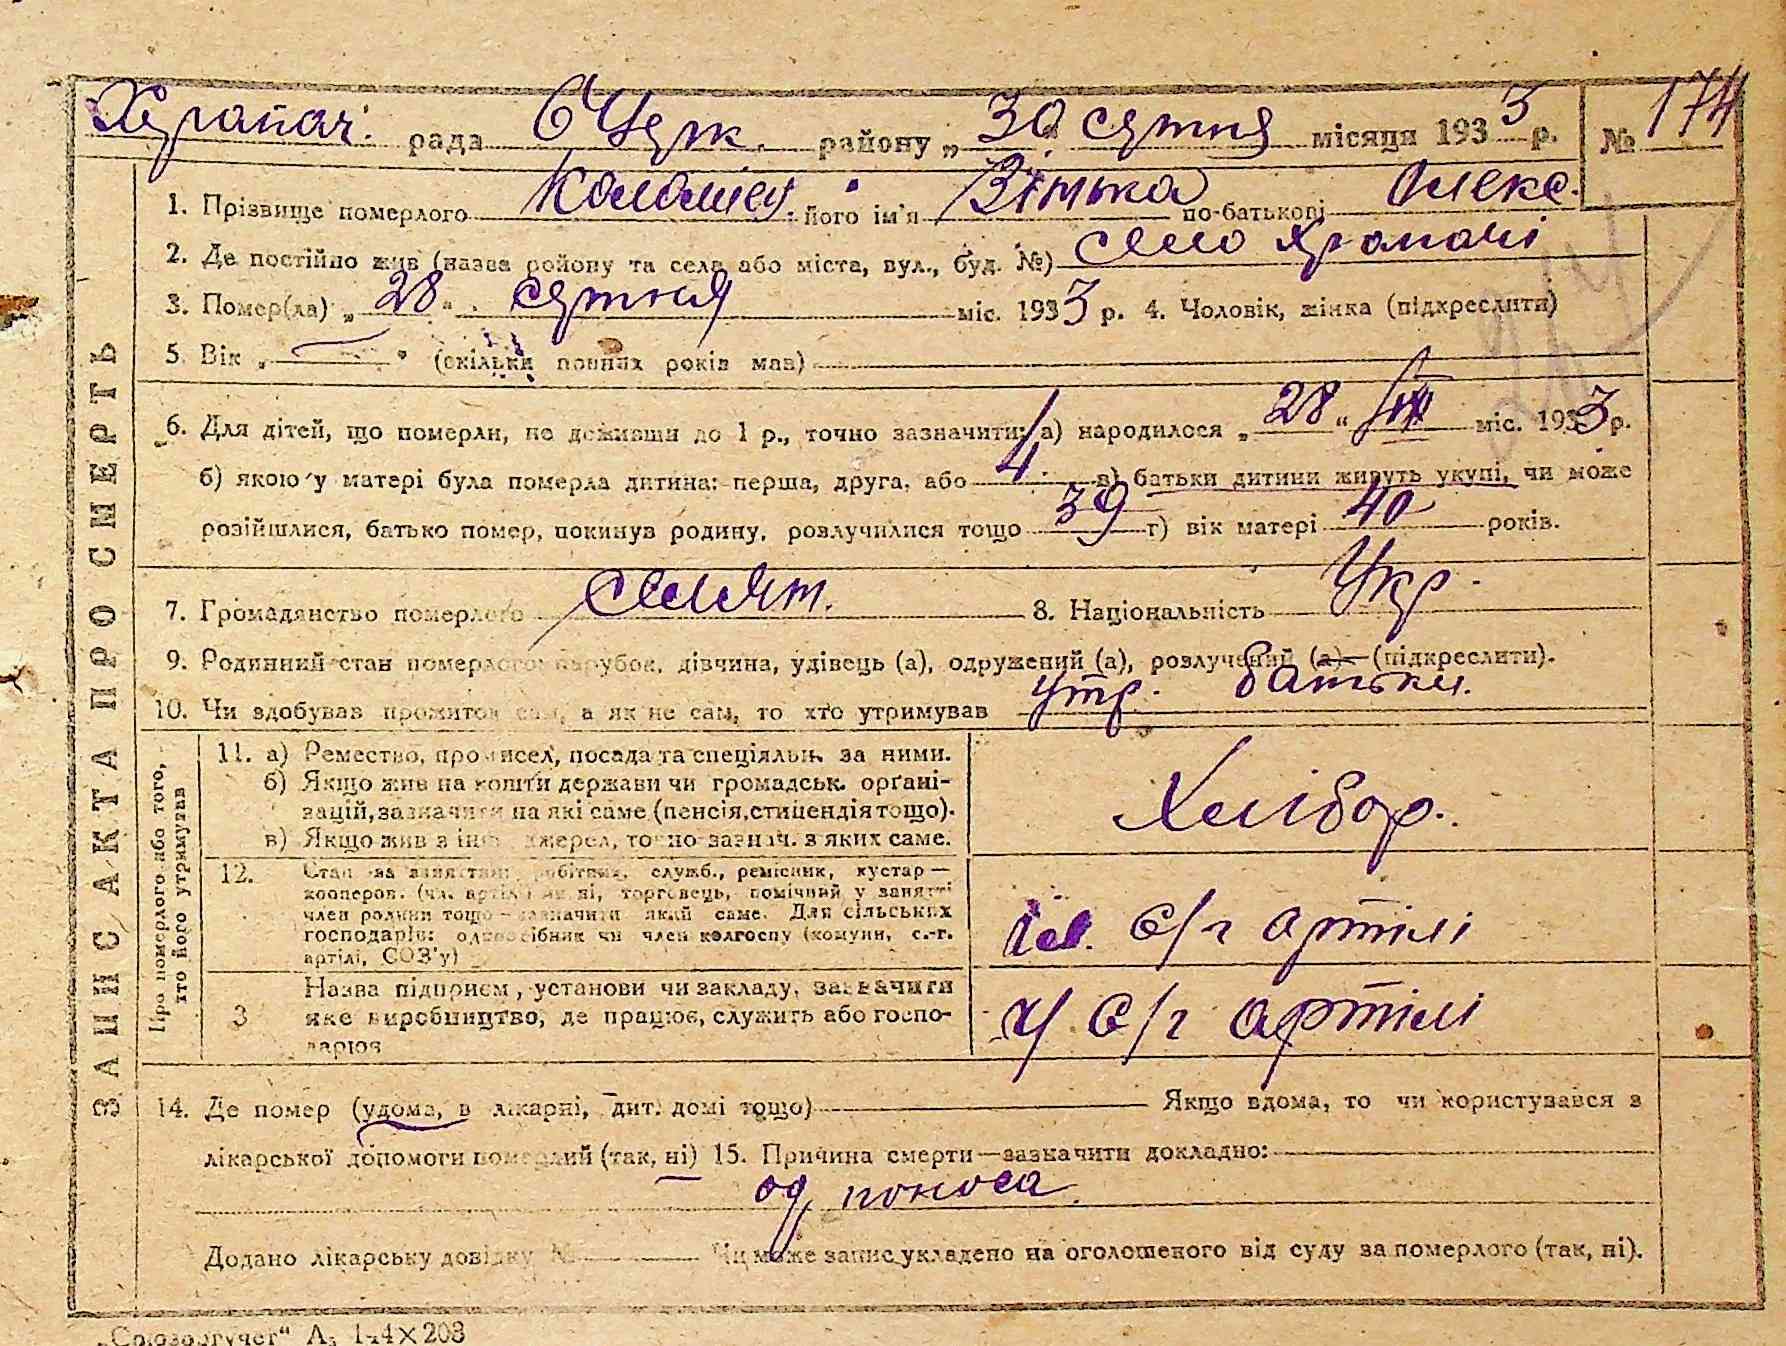 Храпач. рада БЦерк. району „30 серпня місяця 1933 р. № 174
1. Прізвище померлого Коломієц. його ім'я Вітька по-батькові Олекс.
2. Де постійно жив (назва району та села або міста, вул., буд. №) село Храпачі
3. Помер(ла) „28" серпня міс. 1933 р. 4. Чоловік, жінка (підкреслити)
5. Вік „—" (скільки повних років мав)
6. Для дітей, що померли, не доживши до 1 р., точно зазначити: а) народилося „28" міс. 1933 р.
б) якою у матері була померла дитина: перша, друга, або 4. в) батьки дитини живуть укупі, чи може
розійшлися, батько помер, покинув родину, розлучилися тощо 39 г) вік матері 40 років.
7. Громадянство померлого 8. Національність Укр.
9. Родинний стан померлого: парубок, дівчина, удівець (а), одружений (а), розлучений (а) — (підкреслити).
10. Чи здобував прожиток сам, а як не сам, то хто утримував утр. батьки.
ЗАПИС АКТА ПРО СМЕРТЬ
Про померлого або того, хто його утримував
11. а) Ремество, промисел, посада та спеціяльн. за ними.
б) Якщо жив на кошти держави чи громадськ. орґані-
зацій, зазначити на які саме (пенсія, стипендія тощо).
в) Якщо жив з інш. джерел, точно зазнач. з яких саме.
Хлібор.
12. Стан за заняттям: робітник, служб., ремісник, кустар —
кооперов. (чл. артілі) чи ні, торговець, помічний у занятті
член родини тощо — зазначити який саме. Для сільських
господарів: одноосібник чи член колгоспу (комуни, с.-г.
артілі, СОЗ'у)
с/г артілі
3 Назва підприєм, установи чи закладу, зазначити
яке виробництво, де працює, служить або госпо-
дарює
у с/г артілі
14. Де помер (удома, в лікарні, дит. домі тощо) Якщо вдома, то чи користувався з
лікарської допомоги померлий (так, ні) 15. Причина смерти — зазначити докладно:
од поноса.
Додано лікарську довідку № Чи може запис укладено на оголошеного від суду за померлого (так, ні).
„Союзоргучет" А₅ 144×203